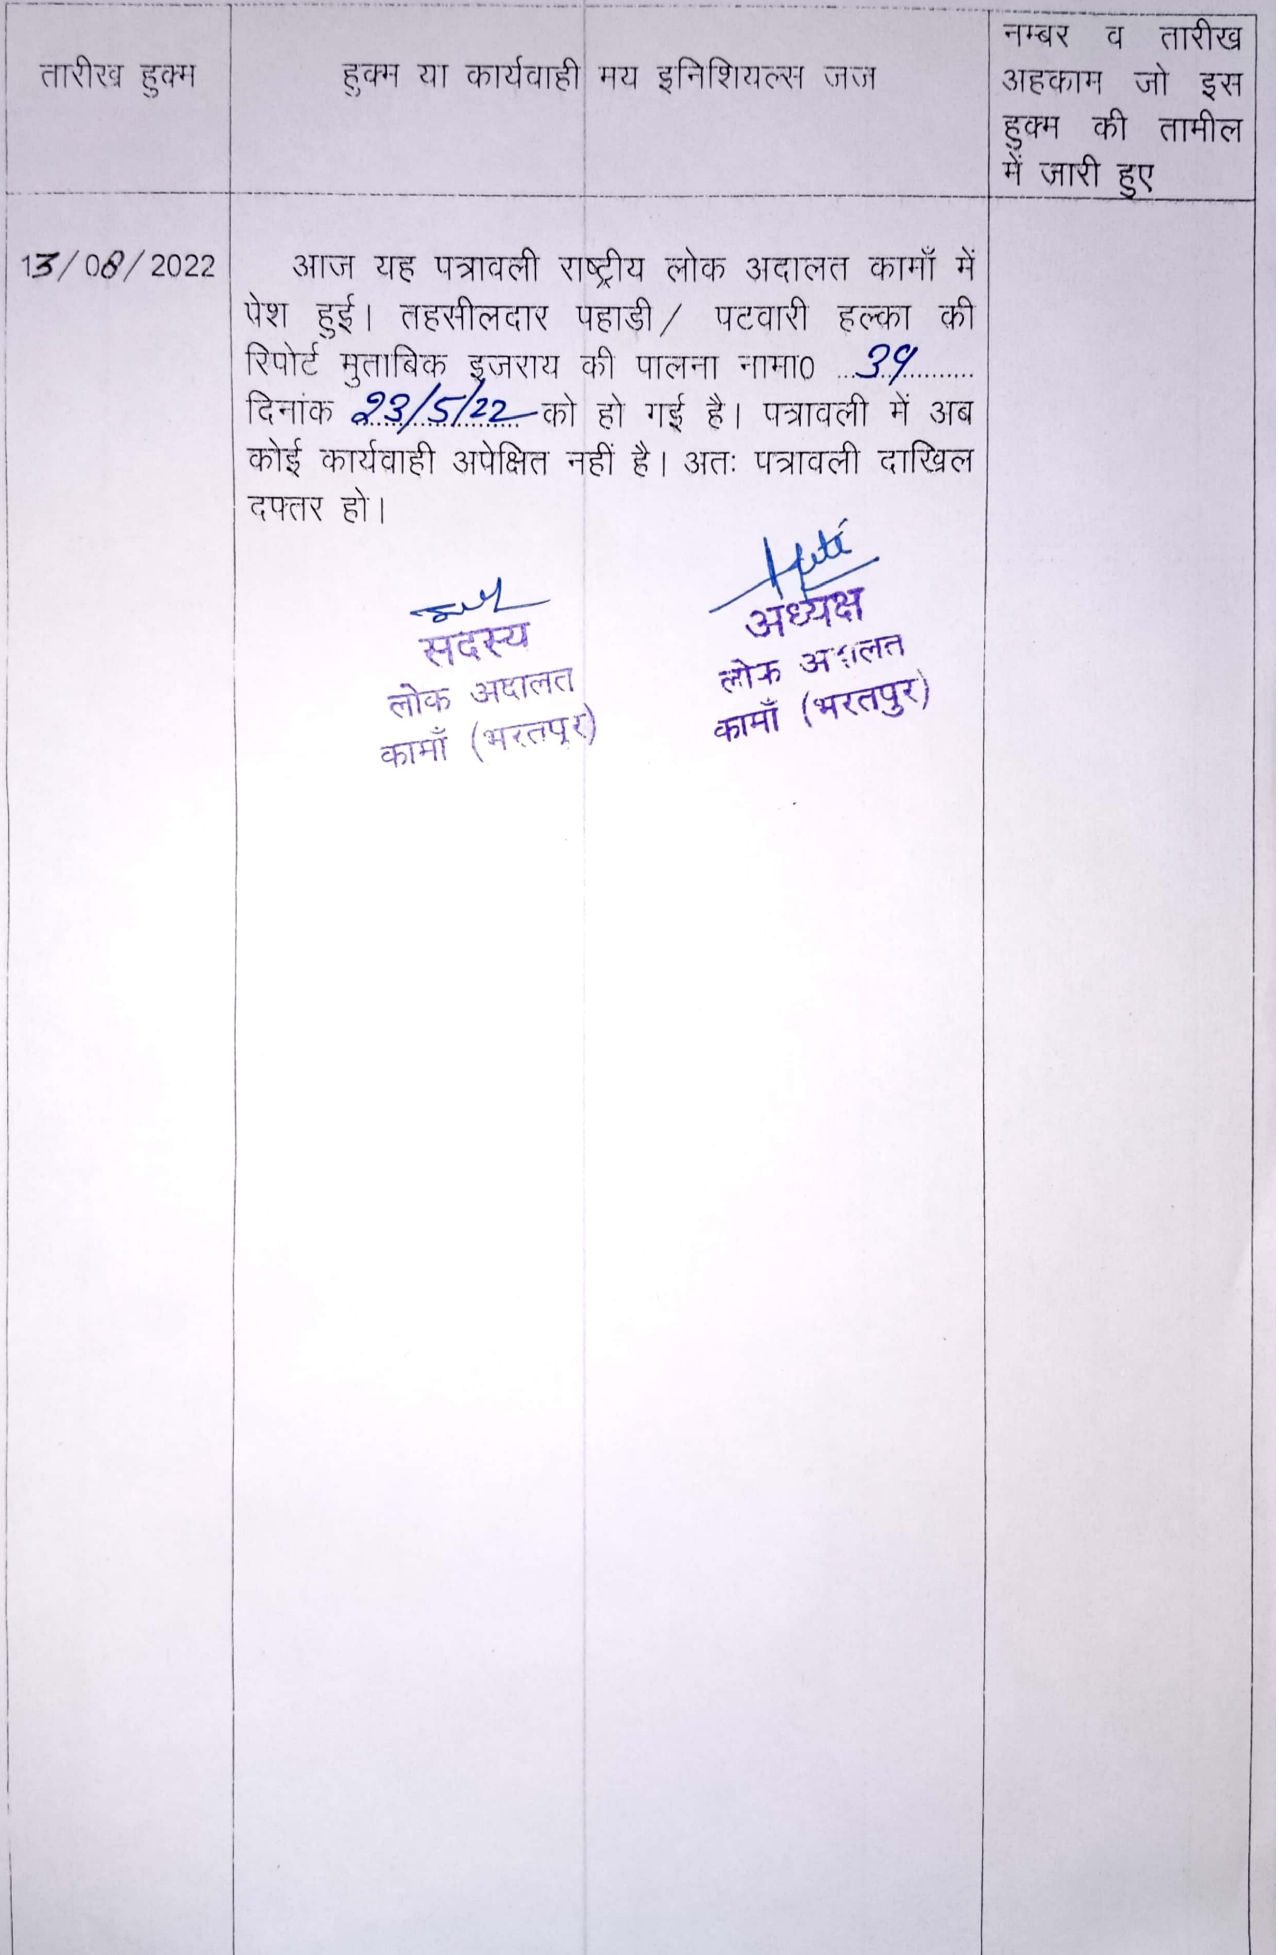 तारीख हुक्म
हुक्म या कार्यवाही मय इनिशियल्स जज
नम्बर व तारीख
अहकाम जो इस
हुक्म की तामील
में जारी हुए
13/08/2022
आज यह पत्रावली राष्ट्रीय लोक अदालत कामाँ में
पेश हुई। तहसीलदार पहाडी/ पटवारी हल्का की
रिपोर्ट मुताबिक इजराय की पालना नामा0 ...39...........
दिनांक 23/5/22 को हो गई है। पत्रावली में अब
कोई कार्यवाही अपेक्षित नहीं है। अतः पत्रावली दाखिल
दफ्तर हो।
सदस्य
लोक अदालत
कामाँ (भरतपुर)
अध्यक्ष
लोक अदालत
कामाँ (भरतपुर)